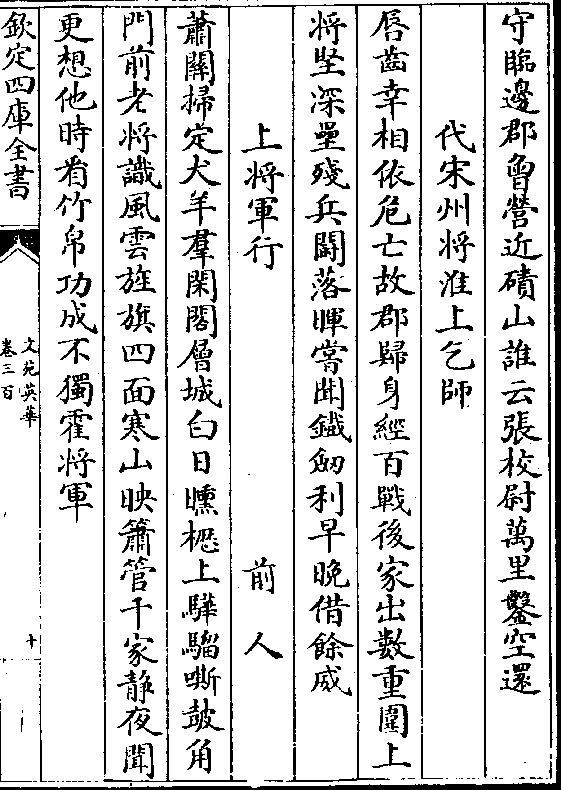 守臨邊郡曾營近磧山誰云張校尉萬里鑿空還
代宋州将淮上乞師
唇齒幸相依危亡故郡歸身經百戰後家出數重圍上
将堅深壘殘兵鬭落暉嘗聞鐡劒利早晚借餘威
上将軍行　前人
蕭關掃定犬羊羣閑閣層城白日曛櫪上驊騮嘶鼓角
門前老将識風雲旌旗四面寒山映簫管千家静夜聞
更想他時看竹帛功成不獨霍将軍
欽定四庫全書
文苑英華
卷三百
十